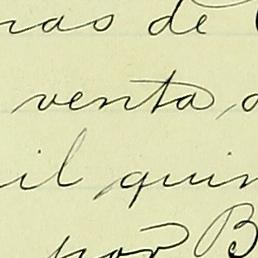 nas de
venta,
il quin
por B